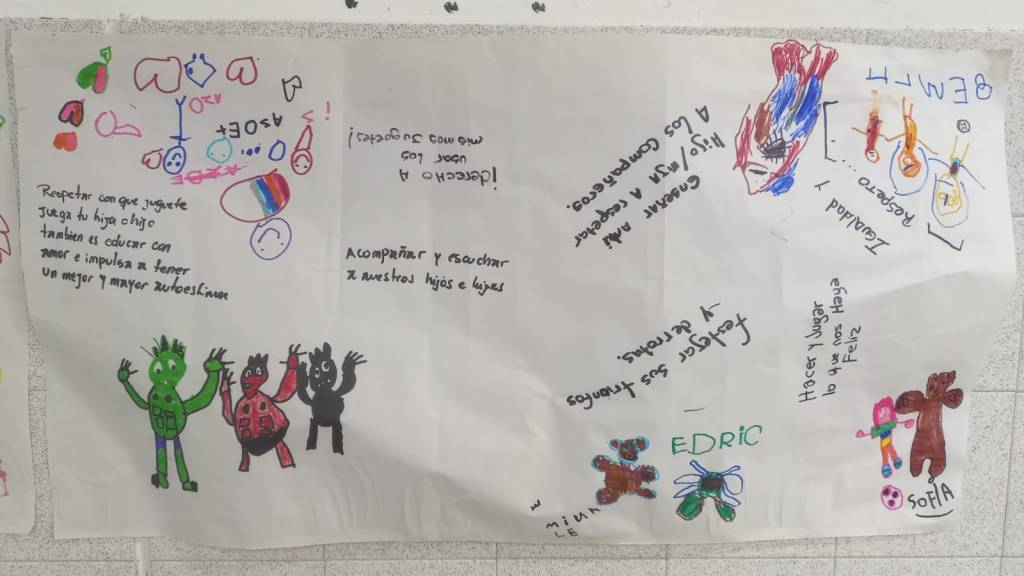 Respetar con que juguete
Juega tu hija o hijo
tambien es educar con
amor e impulsa a tener
un mejor y mayor autoestima
¡derecho A
usar los
mismos Juguetes!
Acompañar y escuchar
a nuestros hijos e hijas
Hijo/Hija A respetar
A los compañeros.
Igualdad y
Respeto
festejar sus triunfos
y derrotas.
Hacer y Jugar
lo que nos Haga
Feliz
EDRIC
SOFIA